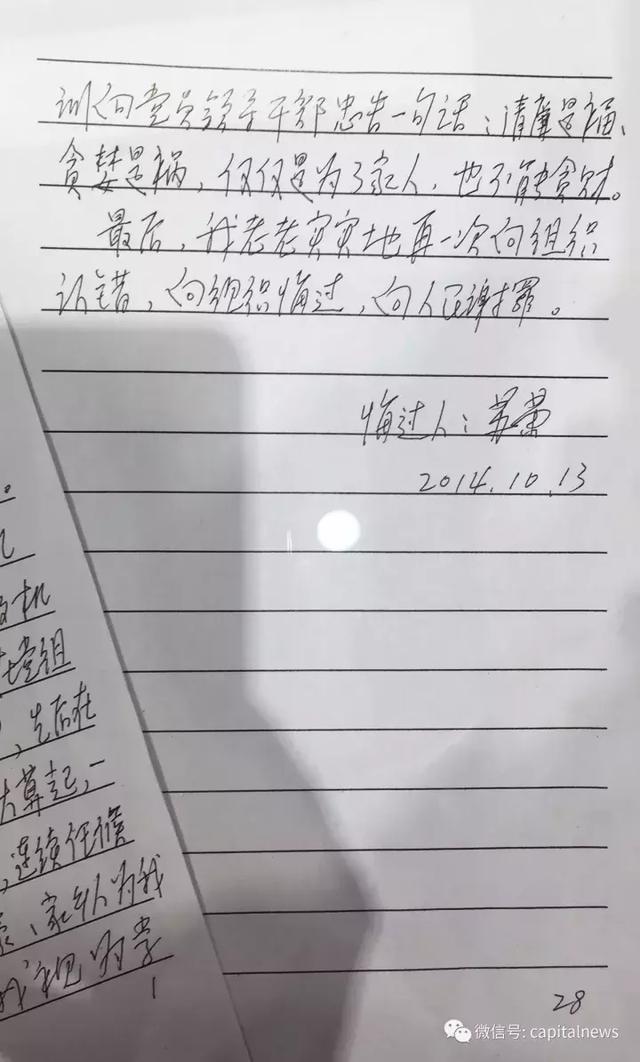 训向党员领导干部忠告一句话：清廉是福、
贪婪是祸，仅仅是为了家人，也不能贪财。
最后，我老老实实地再一次向组织
认错，向组织悔过，向人民谢罪。
悔过人：苏荣
2014.10.13
28
。
机
党组
，先后在
算起，一
，连续任
、家乡人为我
我视为
1
微信号: capitalnews